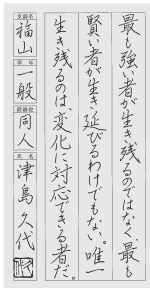 最も強い者が生き残るのではなく最も
賢い者が生き延びるわけでもない。唯一
生き残るのは、変化に対応できる者だ。
支部名
福山
学年
一般
段級位
同人
氏名
津島久代